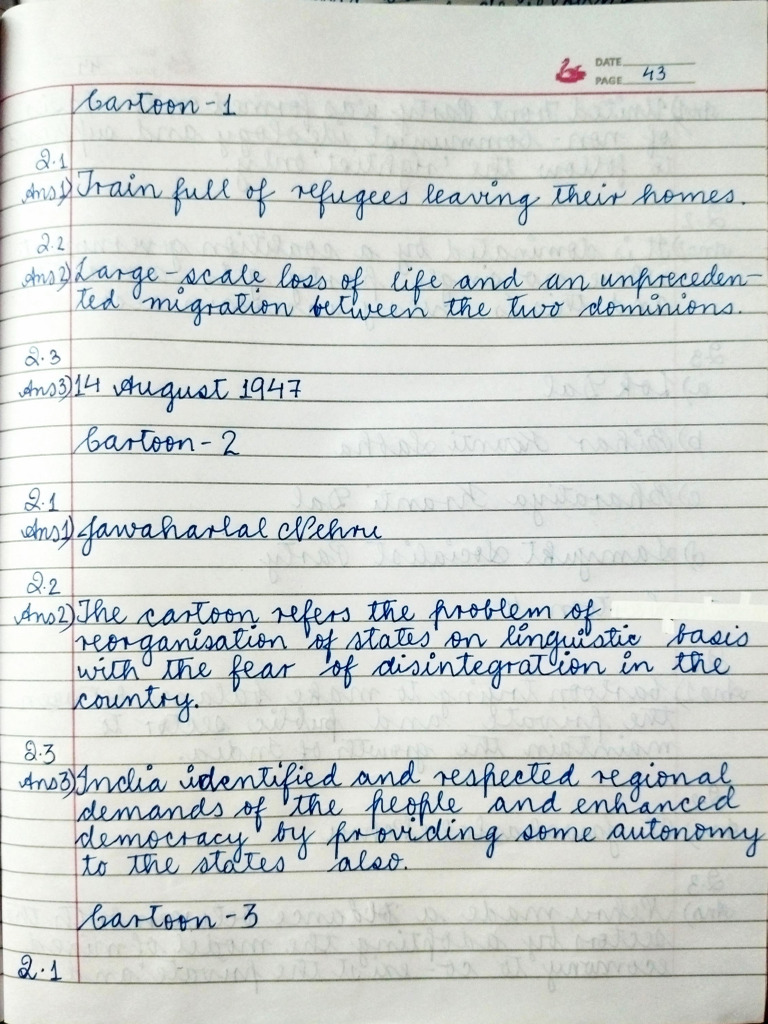 DATE
PAGE 43
Cartoon-1
2.1
Ans1) Train full of refugees leaving their homes.
2.2
Ans2) Large-scale loss of life and an unpreceden-
ted migration between the two dominions.
2.3
Ans3) 14 August 1947
Cartoon-2
2.1
Ans1) Jawaharlal Nehru
2.2
Ans2) The cartoon refers the problem of
reorganisation of states on linguistic basis
with the fear of disintegration in the
country.
2.3
Ans3) India identified and respected regional
demands of the people and enhanced
democracy by providing some autonomy
to the states also.
Cartoon-3
2.1